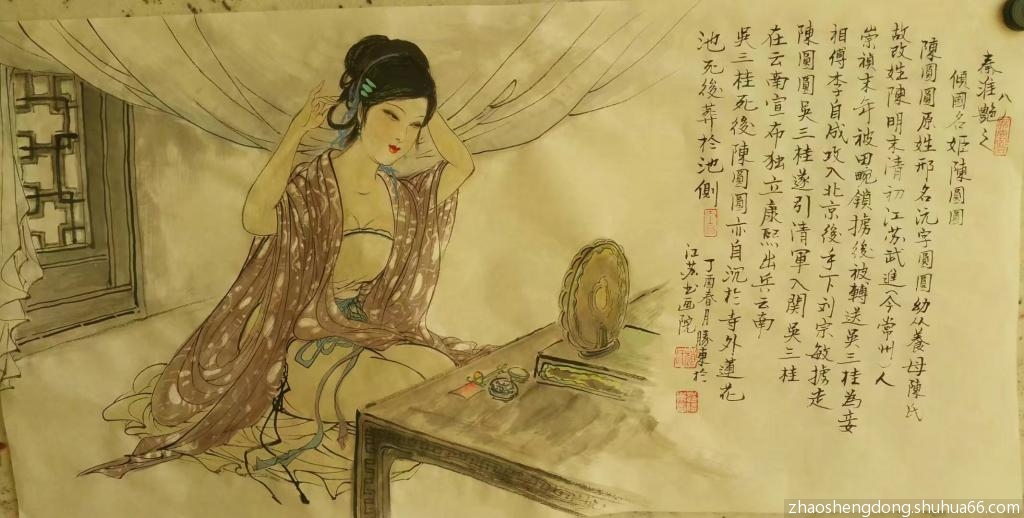 秦淮八艳之
倾國名姬陳圓圓
陳圓圓原姓邢名沅字圓圓幼从養母陳氏
故改姓陳明末清初江苏武進(今常州)人
崇禎末年被田畹鎖掳後被轉送吳三桂為妾
相傳李自成攻入北京後手下刘宗敏掳走
陳圓圓吳三桂遂引清軍入関吳三桂
在云南宣布独立康熙出兵云南
吳三桂死後陳圓圓亦自沉於寺外蓮花
池死後葬於池側
丁酉春月勝東於
江苏书画院
zhaoshengdong.shuhua66.com